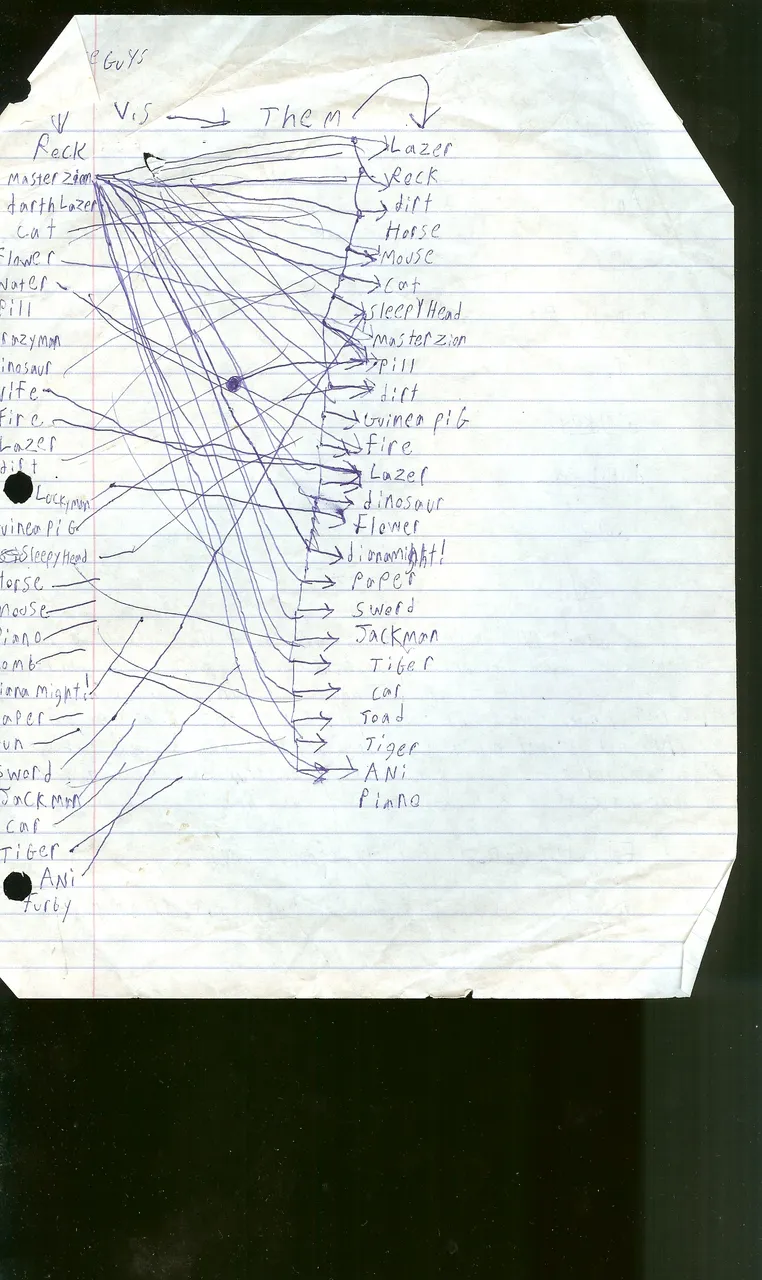 e GUYS
V.S Them
Rock
Master Zion
darth Lazer
Cat
Flower
water
Pill
razyman
inosaur
ife
Fire
Lazer
dirt
Lockyman
uinea PiG
SleepyHead
Horse
Mouse
Piano
omb
iana might!
aper
un
Sword
JackMan
Car
TiGer
ANi
Furby
Lazer
Rock
dirt
Horse
Mouse
Cat
SleepyHead
Master Zion
Pill
dirt
Guinea piG
Fire
Lazer
dinosaur
Flower
dianamight!
PaPer
Sword
JackMan
TiGer
Car
Toad
Tiger
ANi
Piano